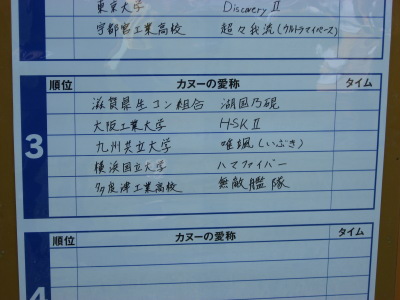 東京大学 Discovery II
宇都宮工業高校 超々我流(ウルトラマイペース)
順位 カヌーの愛称 タイム
3
滋賀県生コン組合 湖国乃硯
大阪工業大学 HSK II
九州共立大学 唯颯(いぶき)
横浜国立大学 ハマファイバー
多度津工業高校 無敵艦隊
順位 カヌーの愛称 タイム
4